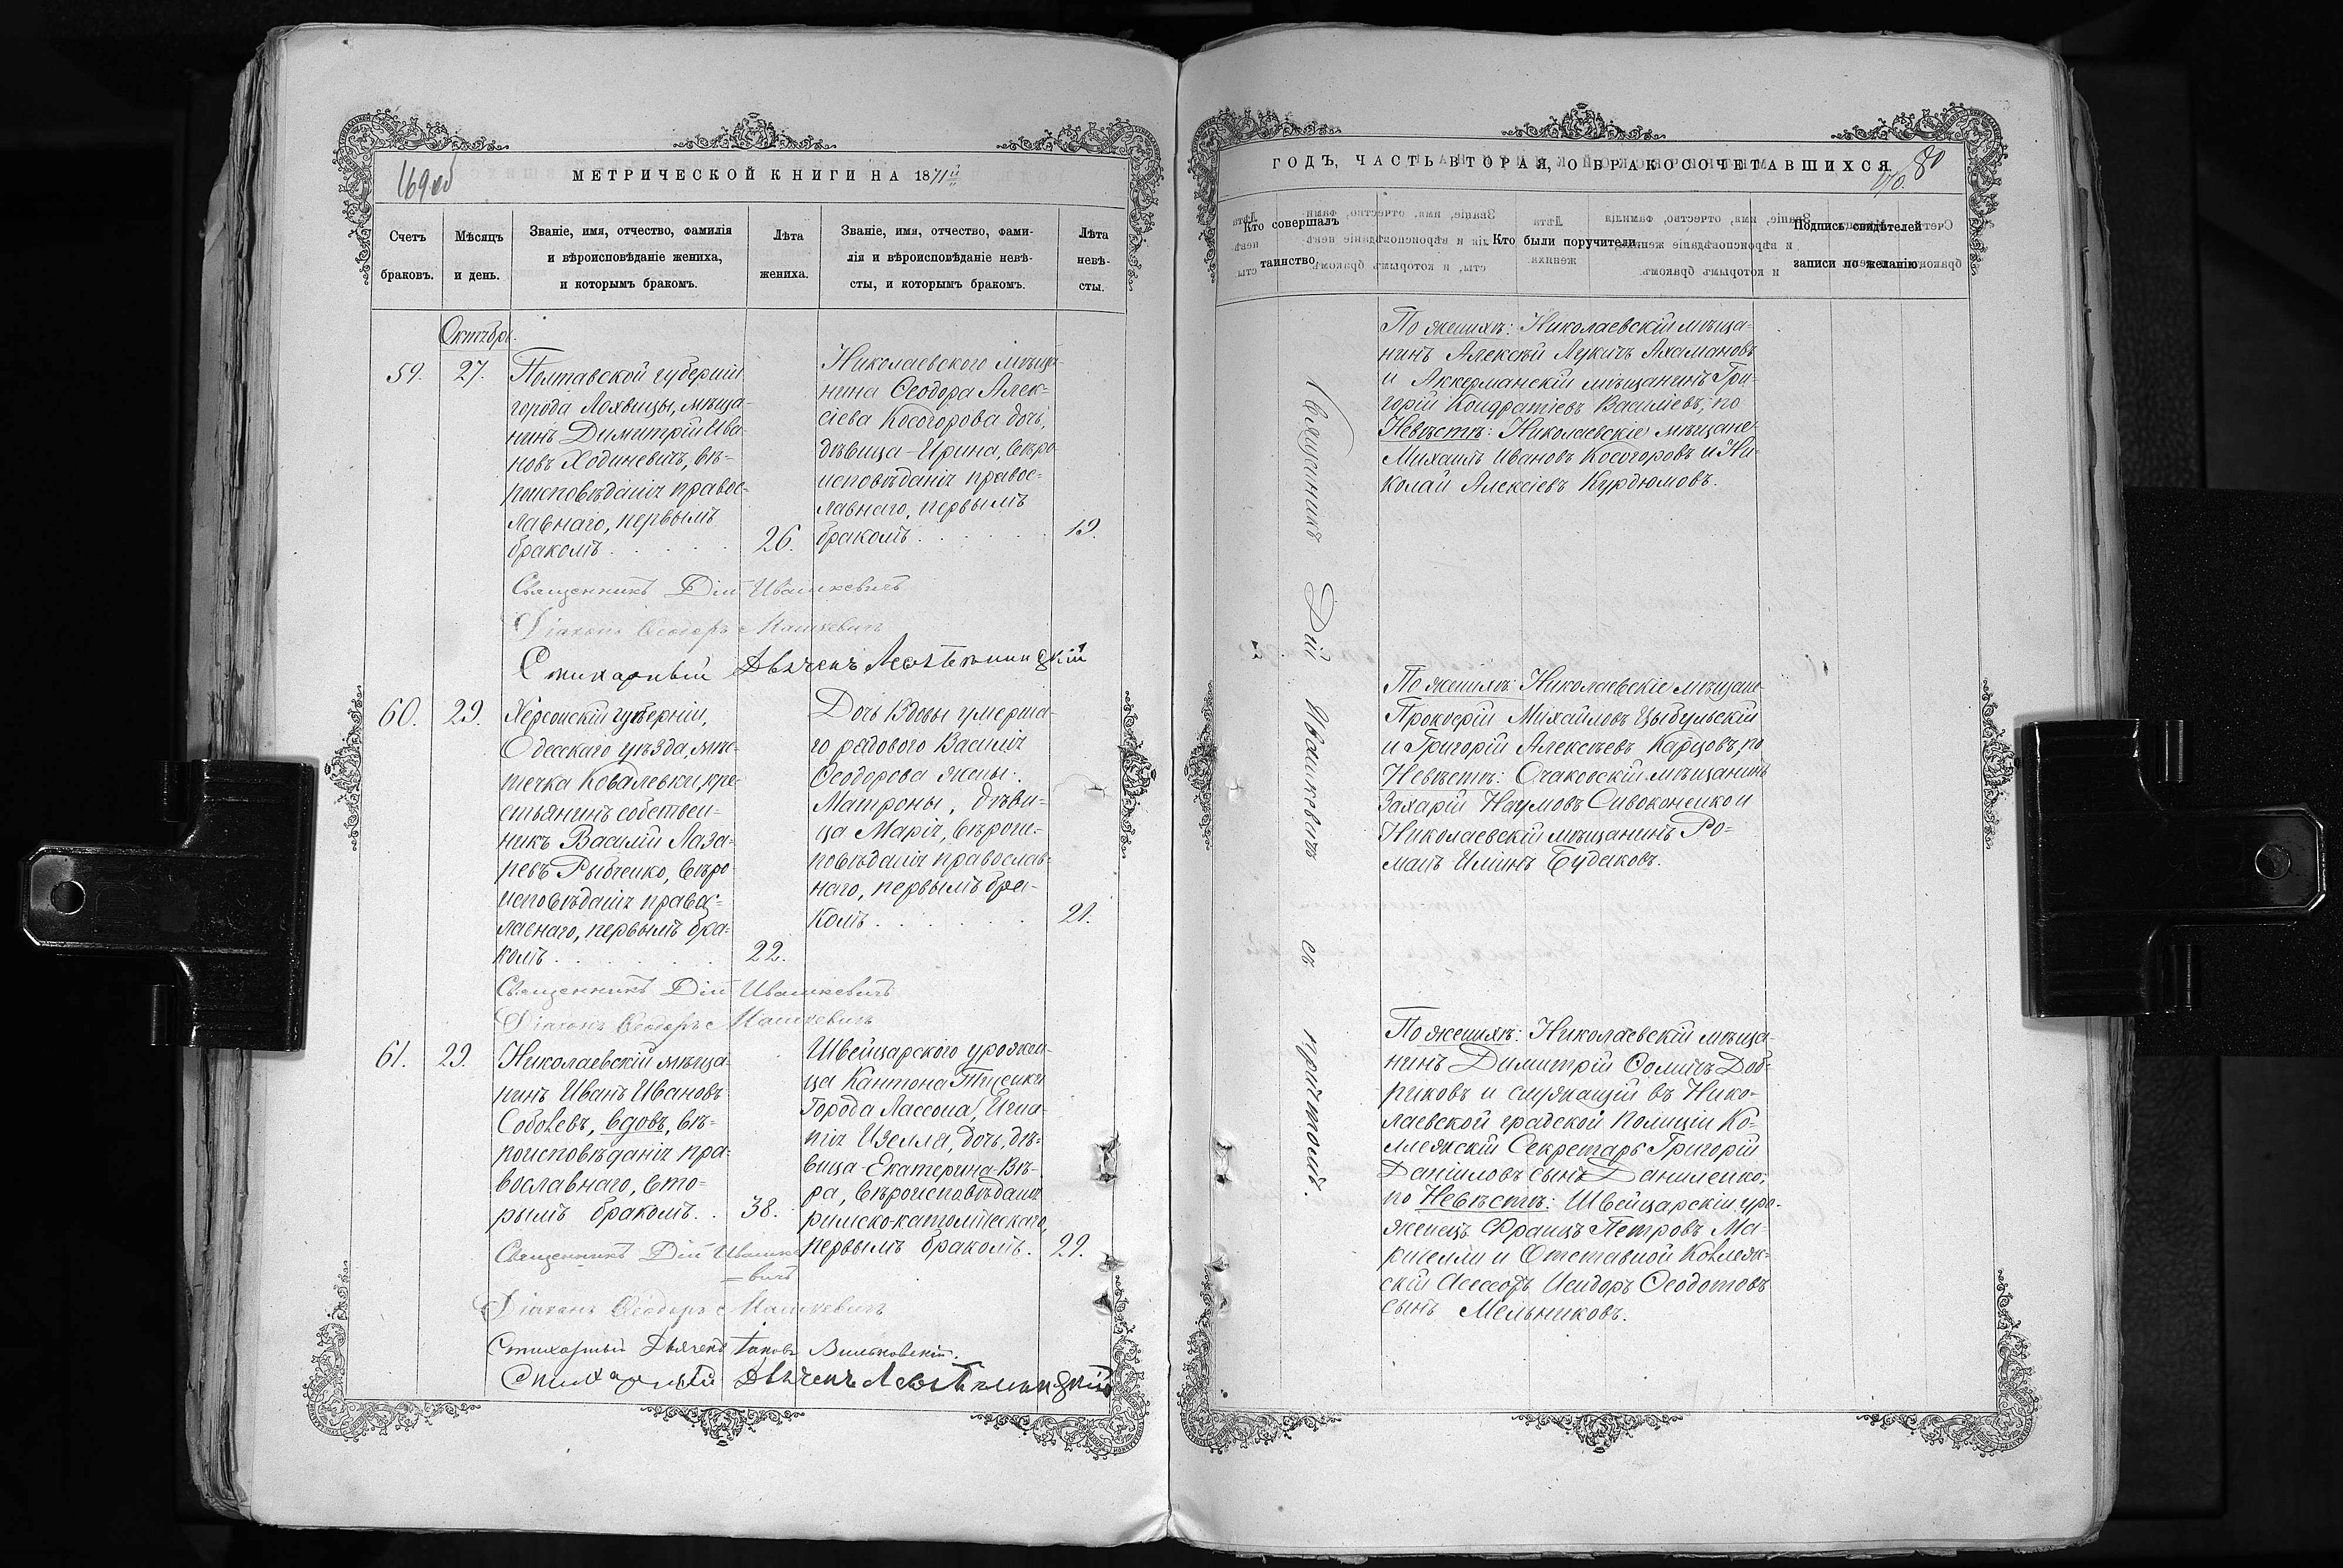 169об
МЕТРИЧЕСКОЙ КНИГИ НА 1871й
Счетъ браковъ.
Мѣсяцъ и день.
Званіе, имя, отчество, фамилія
и вѣроисповѣданіе жениха,
и которымъ бракомъ.
Лѣта жениха.
Званіе, имя, отчество, фами-
лія и вѣроисповѣданіе невѣ-
сты, и которымъ бракомъ.
Лѣта невѣ-
сты.
Октябрь.
59.
27.
Полтавской губерніи
города Лохвицы, мѣща-
нинъ Димитрій Ива-
новъ Ходиневичъ, вѣ-
роисповѣданія правос-
лавнаго, первымъ
бракомъ
26.
Николаевского мѣща-
нина Ѳеодора Алек-
сіева Косогорова дочь,
дѣвица Ирина, вѣро-
исповѣданія правос-
лавнаго, первымъ
бракомъ
19.
Священникъ Дій Ивашкевичъ
Діаконъ Ѳеодоръ Машкевичъ
Стихарный Дьячекъ
60.
29.
Херсонскій губерніи,
Одесскаго уѣзда, мѣс-
течка Ковалевки, кре-
стьянинъ собствен-
никъ Василій Лаза-
ревъ Рыбченко, вѣро-
исповѣданія правос-
лавнаго, первымъ бра-
комъ
22.
Дочь Вдовы умерша-
го рядового Василія
Ѳеодорова жены
Матроны, дѣви-
ца Марія, вѣроис-
повѣданія православ-
наго, первымъ бра-
комъ
21.
Священникъ Дій Ивашкевичъ
Діаконъ Ѳеодоръ Машкевичъ
61.
29.
Николаевскій мѣща-
нинъ Иванъ Ивановъ
Соболевъ, вдовъ, вѣ-
роисповѣданія пра-
вославнаго, вто-
рымъ бракомъ.
38.
Швейцарского урожен-
ца Кантона
Города Лассона, Игна-
тія Изелла, дочь, дѣ-
вица Екатерина-Вѣ-
ра, вѣроисповѣданія
римско-католическаго,
первымъ бракомъ.
29.
Священникъ Дій Ивашке
=вичъ
Діаконъ Ѳеодоръ Машкевичъ
Стихарный Дьячекъ Іаковъ Вильковскій.
Стихарный Дьячекъ
ГОДЪ, ЧАСТЬ ВТОРАЯ, О БРАКОСОЧЕТАВШИХСЯ.
170.
80
Кто совершалъ
таинство.
Кто были поручители.
Подпись свидѣтелей
записи по желанію.
Священникъ Дій Ивашкевичъ съ причтомъ.
По женихѣ: Николаевскій мѣща-
нинъ Алексѣй Лукичъ Ахамановъ
и Аккерманскій мѣщанинъ Гри-
горій Кондратіевъ Василіевъ; по
Невѣстѣ: Николаевскіе мѣщане
Михаилъ Ивановъ Косогоровъ и Ни-
колай Алексіевъ Курдюмовъ.
По женихѣ: Николаевскіе мѣщане
Прокофій Михайловъ Цыбульскій
и Григорій Алексѣевъ Карцовъ, по
Невѣстѣ: Очаковскій мѣщанинъ
Захарій Наумовъ Сивоконенко и
Николаевскій мѣщанинъ Ро-
манъ Илiинъ Будаковъ.
По женихѣ: Николаевскій мѣща-
нинъ Димитрій Ѳомичъ Доб-
риковъ и служащій въ Нико-
лаевской градской Полиціи Ко-
ллежскій Секретарь Григорій
Даніиловъ сынъ Даниленко;
по Невѣстѣ: Швейцарскій уро-
женецъ Францъ Петровъ Ма-
ричелли и Отставной Коллеж-
скій Асессоръ Исидоръ Ѳеодотовъ
сынъ Мельниковъ.